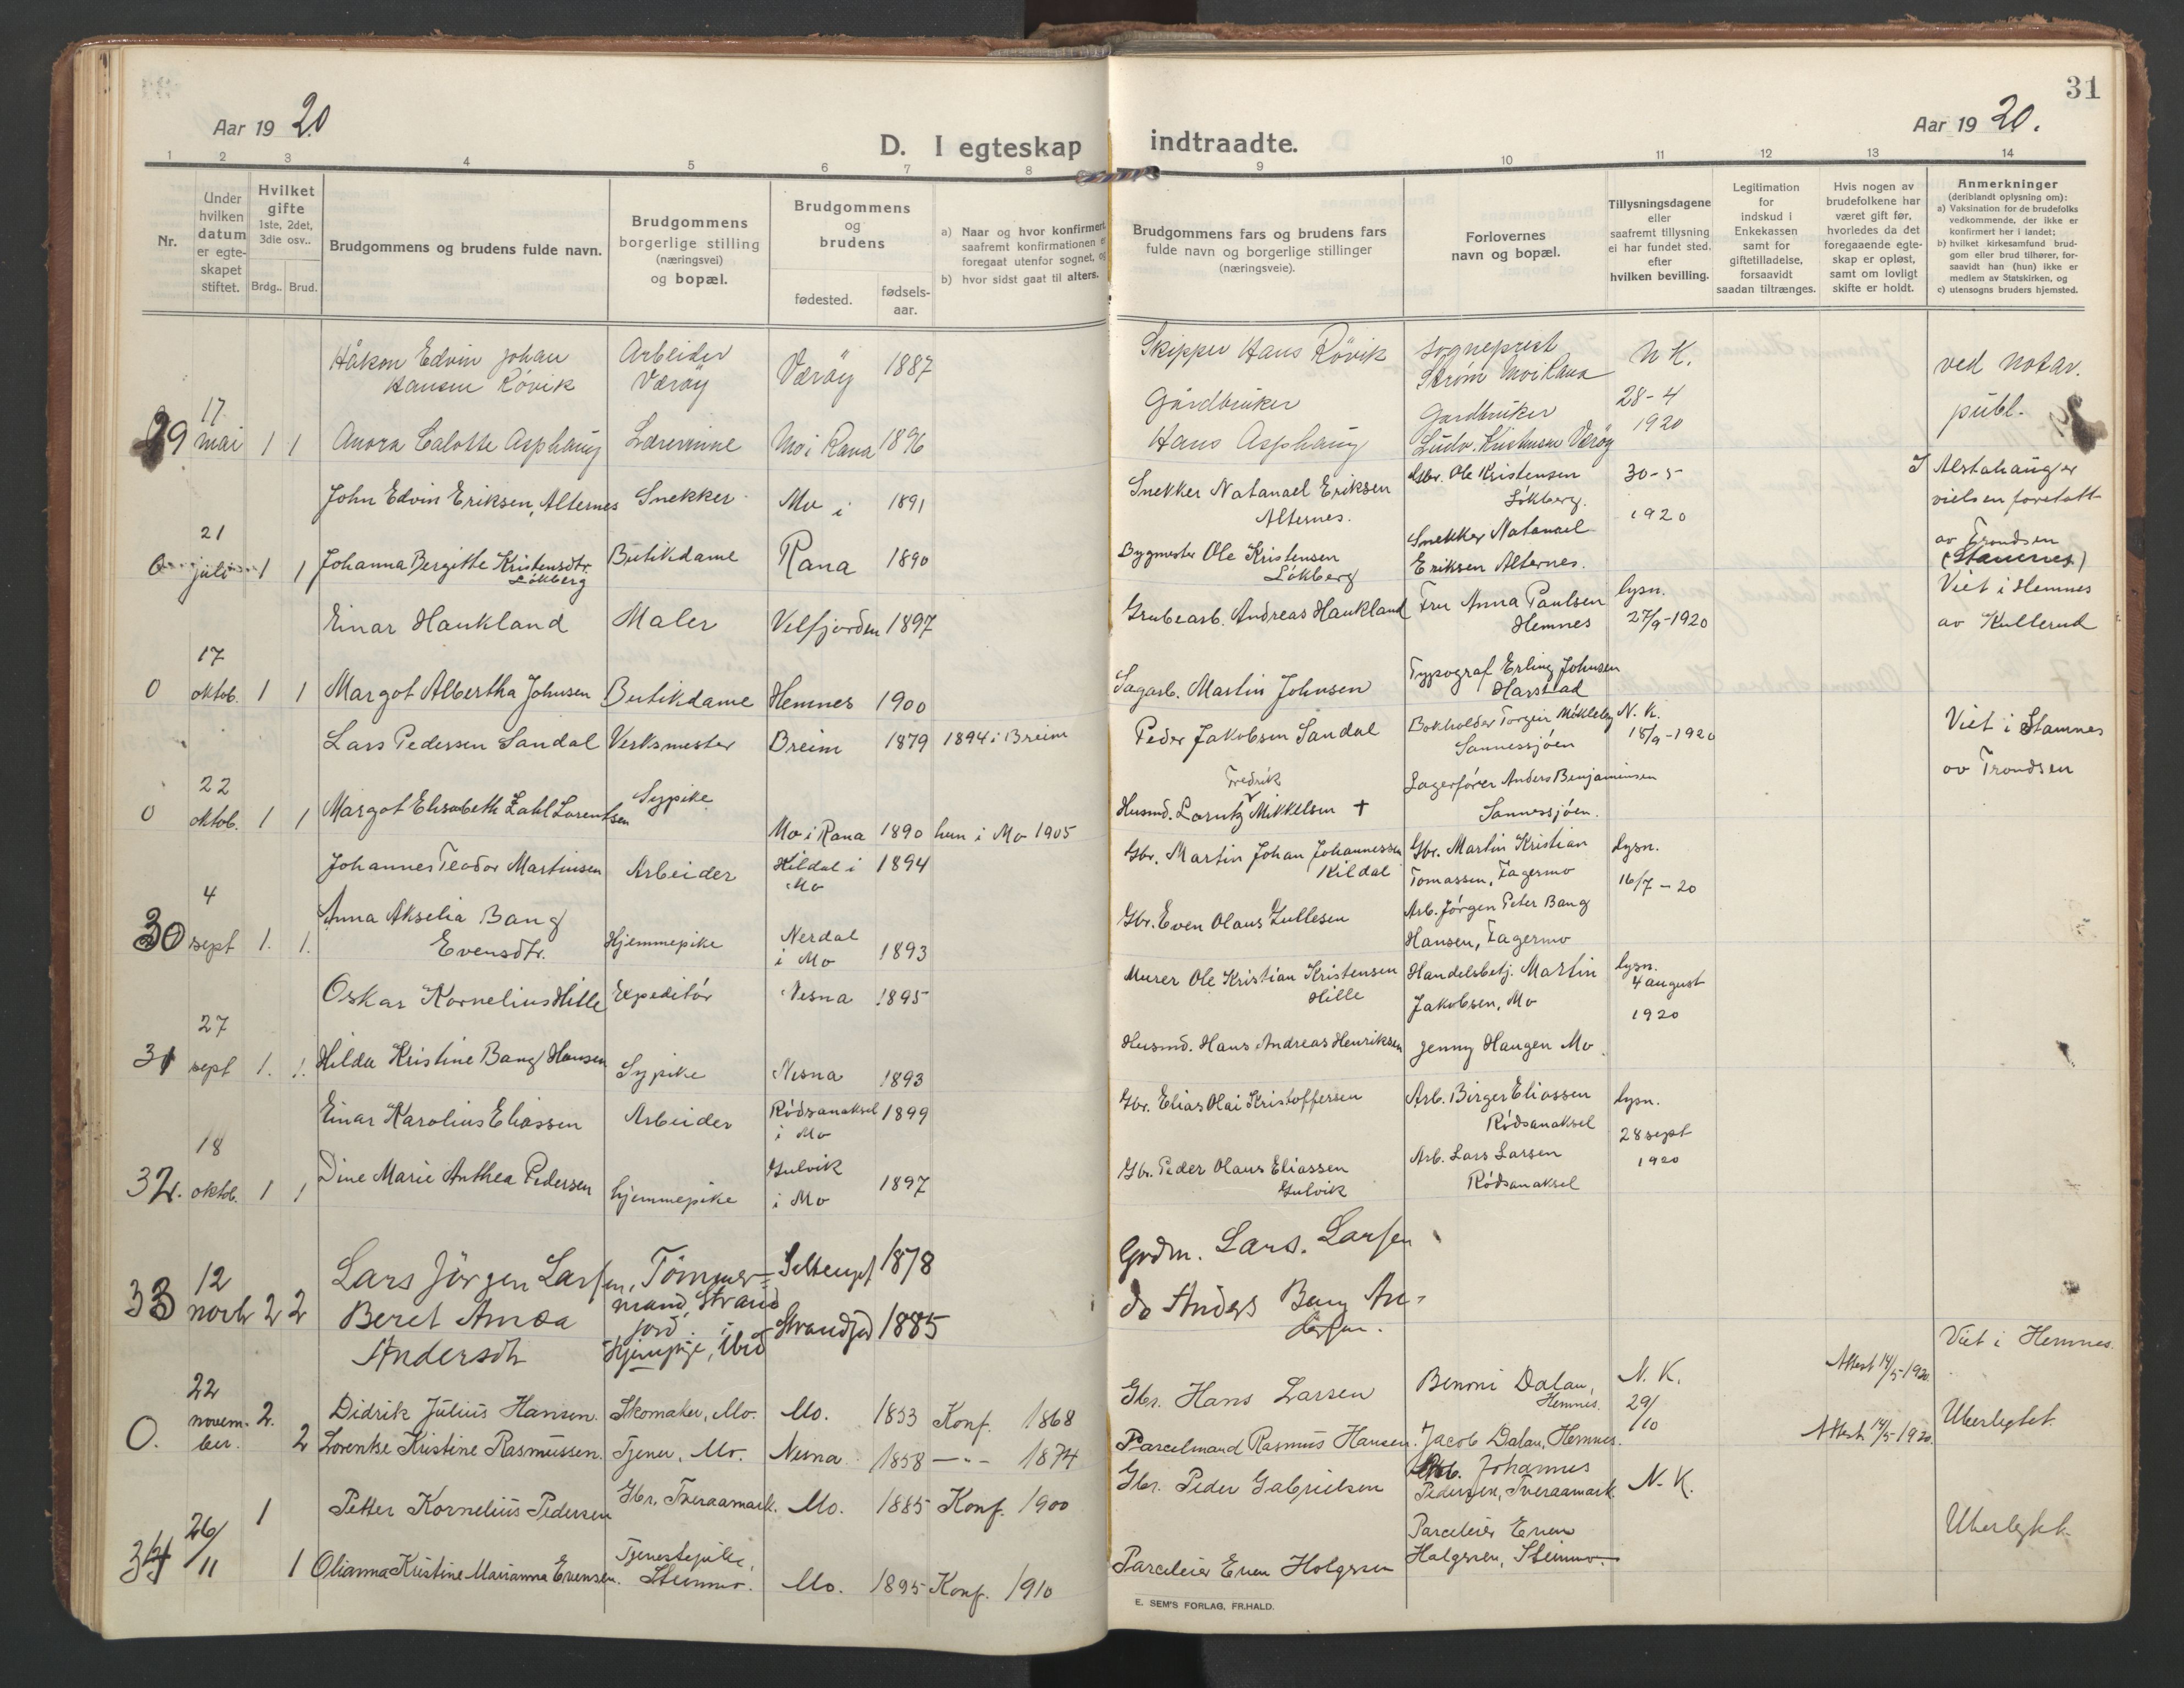 31
Aar 1920
Aar 1920.
D. I egteskap indtraadte.
1 2 3 4 5 6 7 8 9 10 11 12 13 14
Nr.
Under hvilken datum er egteskapet stiftet.
Hvilket gifte 1ste, 2det, 3die osv..
Brdg.. Brud.
Brudgommens og brudens fulde navn.
Brudgommens borgerlige stilling (næringsvei) og bopæl.
Brudgommens og brudens
fødested.
fødsels-aar.
a) Naar og hvor konfirmert
saafremt konfirmationen er
foregaat utenfor sognet, og
b) hvor sidst gaat til alters.
Brudgommens fars og brudens fars
fulde navn og borgerlige stillinger
(næringsveie).
Forlovernes
navn og bopæl.
Tillysningsdagene
eller
saafremt tillysning
ei har fundet sted,
efter
hvilken bevilling.
Legitimation
for
indskud i
Enkekassen
samt for
giftetilladelse,
forsaavidt
saadan tiltrænges.
Hvis nogen av
brudefolkene har
været gift før,
hvorledes da det
foregaaende egte-
skap er opløst,
samt om lovligt
skifte er holdt.
Anmerkninger
(deriblandt oplysning om):
a) Vaksination for de brudefolks
vedkommende, der ikke er
konfirmert her i landet;
b) hvilket kirkesamfund brud-
gom eller brud tilhører, for-
saavidt han (hun) ikke er
medlem av Statskirken, og
c) utensogns bruders hjemsted.
Håkon Edvin Johan Arbeider Værøy 1887 Skipper Hans Rövik Sogneprest N. K. ved notar.
Hansen Rövik Værøy Strøm Mo i Rana 28-4 publ.
29 17 mai 1 1 Asphaug Lærerinne Mo i Rana 1896 Gårdbruker Hans Asphaug Gardbruker 1920
Ludv. Værøy
John Edvin Eriksen, Alternes Snekker Mo i 1891 Snekker Natanael Eriksen Gbr. Ole Kristensen 30-5 I Alstahaug er
Alternes. Løkberg. 1920 vielsen foretatt
0 21 juli 1 1 Johanna Bergitte Kristensdtr. Butikdame Rana 1890 Bygmester Ole Kristensen Snekker Natanael av Trondsen
Løkberg Løkberg Eriksen Alternes. (Stamnes)
Einar Haukland Maler Velfjorden 1897 Grubearb. Andreas Haukland Fru Anna Paulsen lysn. Viet i Hemnes
Hemnes 27/9-1920 av Kullerud
0 17 oktob. 1 1 Margot Albertha Johnsen Butikdame Hemnes 1900 Sagarb. Martin Johnsen Typograf Erling Johnsen
Harstad
Lars Pedersen Sandal Verksmester Breim 1879 1894 i Breim Peder Jakobsen Sandal Bokholder Torgeir Mökleby N. K. Viet i Stamnes
Sannessjøen 18/9-1920 av Trondsen
0 22 oktob. 1 1 Margot Elisabeth Zahl Lorentsen Sypike Mo i Rana 1890 hun i Mo 1905 Husmd. Lorntz Fredrik Mikkelsen + Lagerfører Anders Benjaminsen
Sannessjøen.
Johannes Teodor Martinsen Arbeider Kildal i 1894 Gbr. Martin Johan Johannessen Gbr. Martin Kristian lysn.
Mo Kildal Tomassen, Fagermo 16/7-20
30 4 sept 1. 1. Anna Akselia Bang Hjemmepike Nerdal 1893 Gbr. Even Olaus Zullesen Arb. Jørgen Peter Bang
Evensdtr. i Mo Hansen, Fagermo
Oskar Kornelius Hille Expeditör Nesna 1895 Murer Ole Kristian Kristensen Handelsbetj. Martin lysn.
Hille Jakobsen, Mo 4 august
1920
31 27 sept 1. 1. Hilda Kristine Bang Hansen Sypike Nesna 1893 Husmd. Hans Andreas Henriksen Jenny Haugen Mo
Einar Karolius Eliassen Arbeider Rödsanaksel 1899 Gbr. Elias Olai Kristoffersen Arb. Birger Eliassen lysn.
i Mo Rödsanaksel 28 sept
32. 18 oktob. 1 1 Dine Marie Anthea Pedersen hjemmepike Gulvik 1897 Gbr. Peder Olaus Eliassen Arb. Lars Larsen 1920
i Mo Gulvik Rödsanaksel
Lars Jörgen Larsen, Tömmer- 1878 Grdm. Lars. Larsen
33 12 novb 2 2 Beret Amɔa mand, Strand jord Strandjd 1885 do Anders Bang An-
Andersdtr Ibid dersen.
Didrik Julius Hansen. Skomaker, Mo. Mo. 1853 Konf. 1868 Gbr. Hans Larsen Benoni Dalan, N. K. Attest 14/5-1920. Viet i Hemnes.
Hemnes. 29/10
0. 22 november. 2. 2 Lorentse Kristine Rasmussen. Tjener, Mo. Nesna 1858 -"- 1874 Parcelmand Rasmus Hansen. Jacob Dalan, Hemnes. Attest 14/5-1920. Uberlygtet.
1 Petter Kornelius Pedersen Gbr. Tveraamark. Mo. 1885 Konf. 1900 Gbr. Peder Gabrielsen Johannes N. K.
Pedersen, Tveraamark
34 26/11 1 Olianna Kristine Marianna Evensen. Tjenestepike, Mo. 1895 Konf. 1910 Parceleier Even Holgersen Parceleier Even
Steinmo. Holgersen, Steinmo.
E. SEM'S FORLAG, FR.HALD.